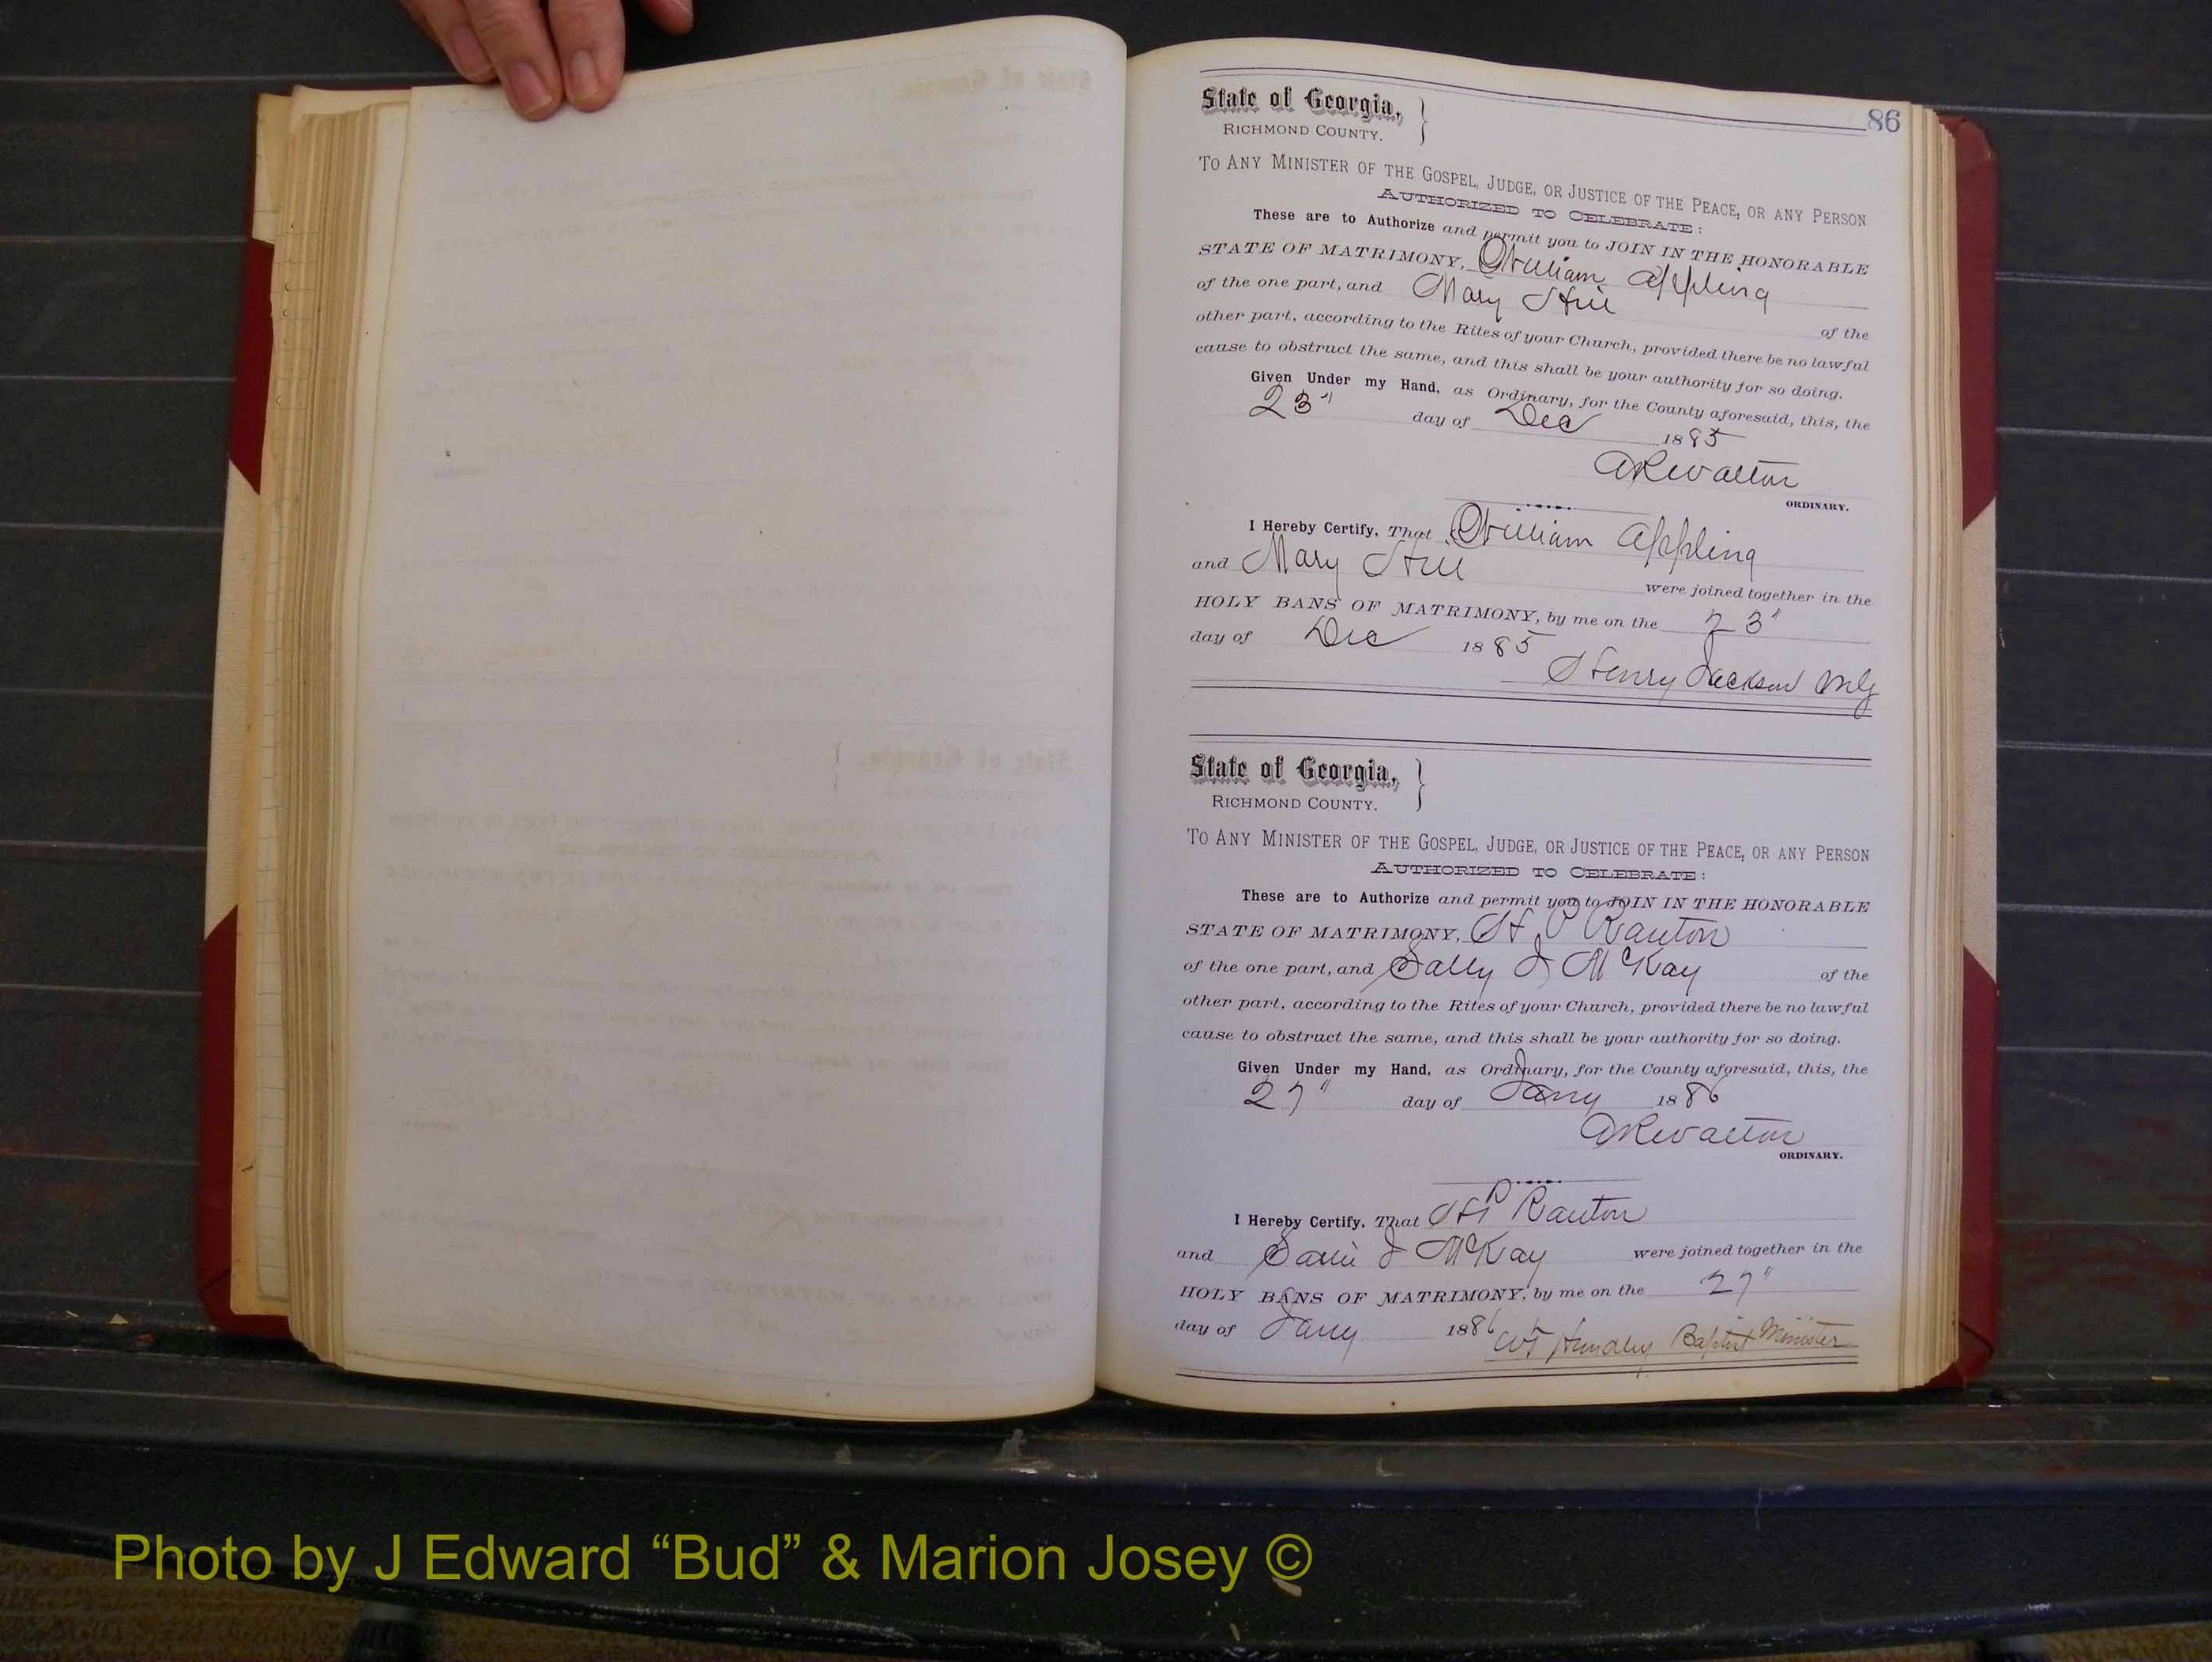 86
State of Georgia,
RICHMOND COUNTY.
TO ANY MINISTER OF THE GOSPEL, JUDGE, OR JUSTICE OF THE PEACE, OR ANY PERSON
AUTHORIZED TO CELEBRATE:
These are to Authorize and permit you to JOIN IN THE HONORABLE
STATE OF MATRIMONY, William Appling
of the one part, and Mary Hill of the
other part, according to the Rites of your Church, provided there be no lawful
cause to obstruct the same, and this shall be your authority for so doing.
Given Under my Hand, as Ordinary, for the County aforesaid, this, the
23" day of Dec 1885
A R Walton
ORDINARY.
I Hereby Certify, That William Appling
and Mary Hill were joined together in the
HOLY BANS OF MATRIMONY, by me on the 23"
day of Dec 1885
Henry Jackson
State of Georgia,
RICHMOND COUNTY.
TO ANY MINISTER OF THE GOSPEL, JUDGE, OR JUSTICE OF THE PEACE, OR ANY PERSON
AUTHORIZED TO CELEBRATE:
These are to Authorize and permit you to JOIN IN THE HONORABLE
STATE OF MATRIMONY, H P Ranton
of the one part, and Sally J McKay of the
other part, according to the Rites of your Church, provided there be no lawful
cause to obstruct the same, and this shall be your authority for so doing.
Given Under my Hand, as Ordinary, for the County aforesaid, this, the
27" day of Jany 1886
A R Walton
ORDINARY.
I Hereby Certify, That H P Ranton
and Sallie J McKay were joined together in the
HOLY BANS OF MATRIMONY, by me on the 27"
day of Jany 1886 Hundley Baptist Minister
Photo by J Edward “Bud” & Marion Josey ©